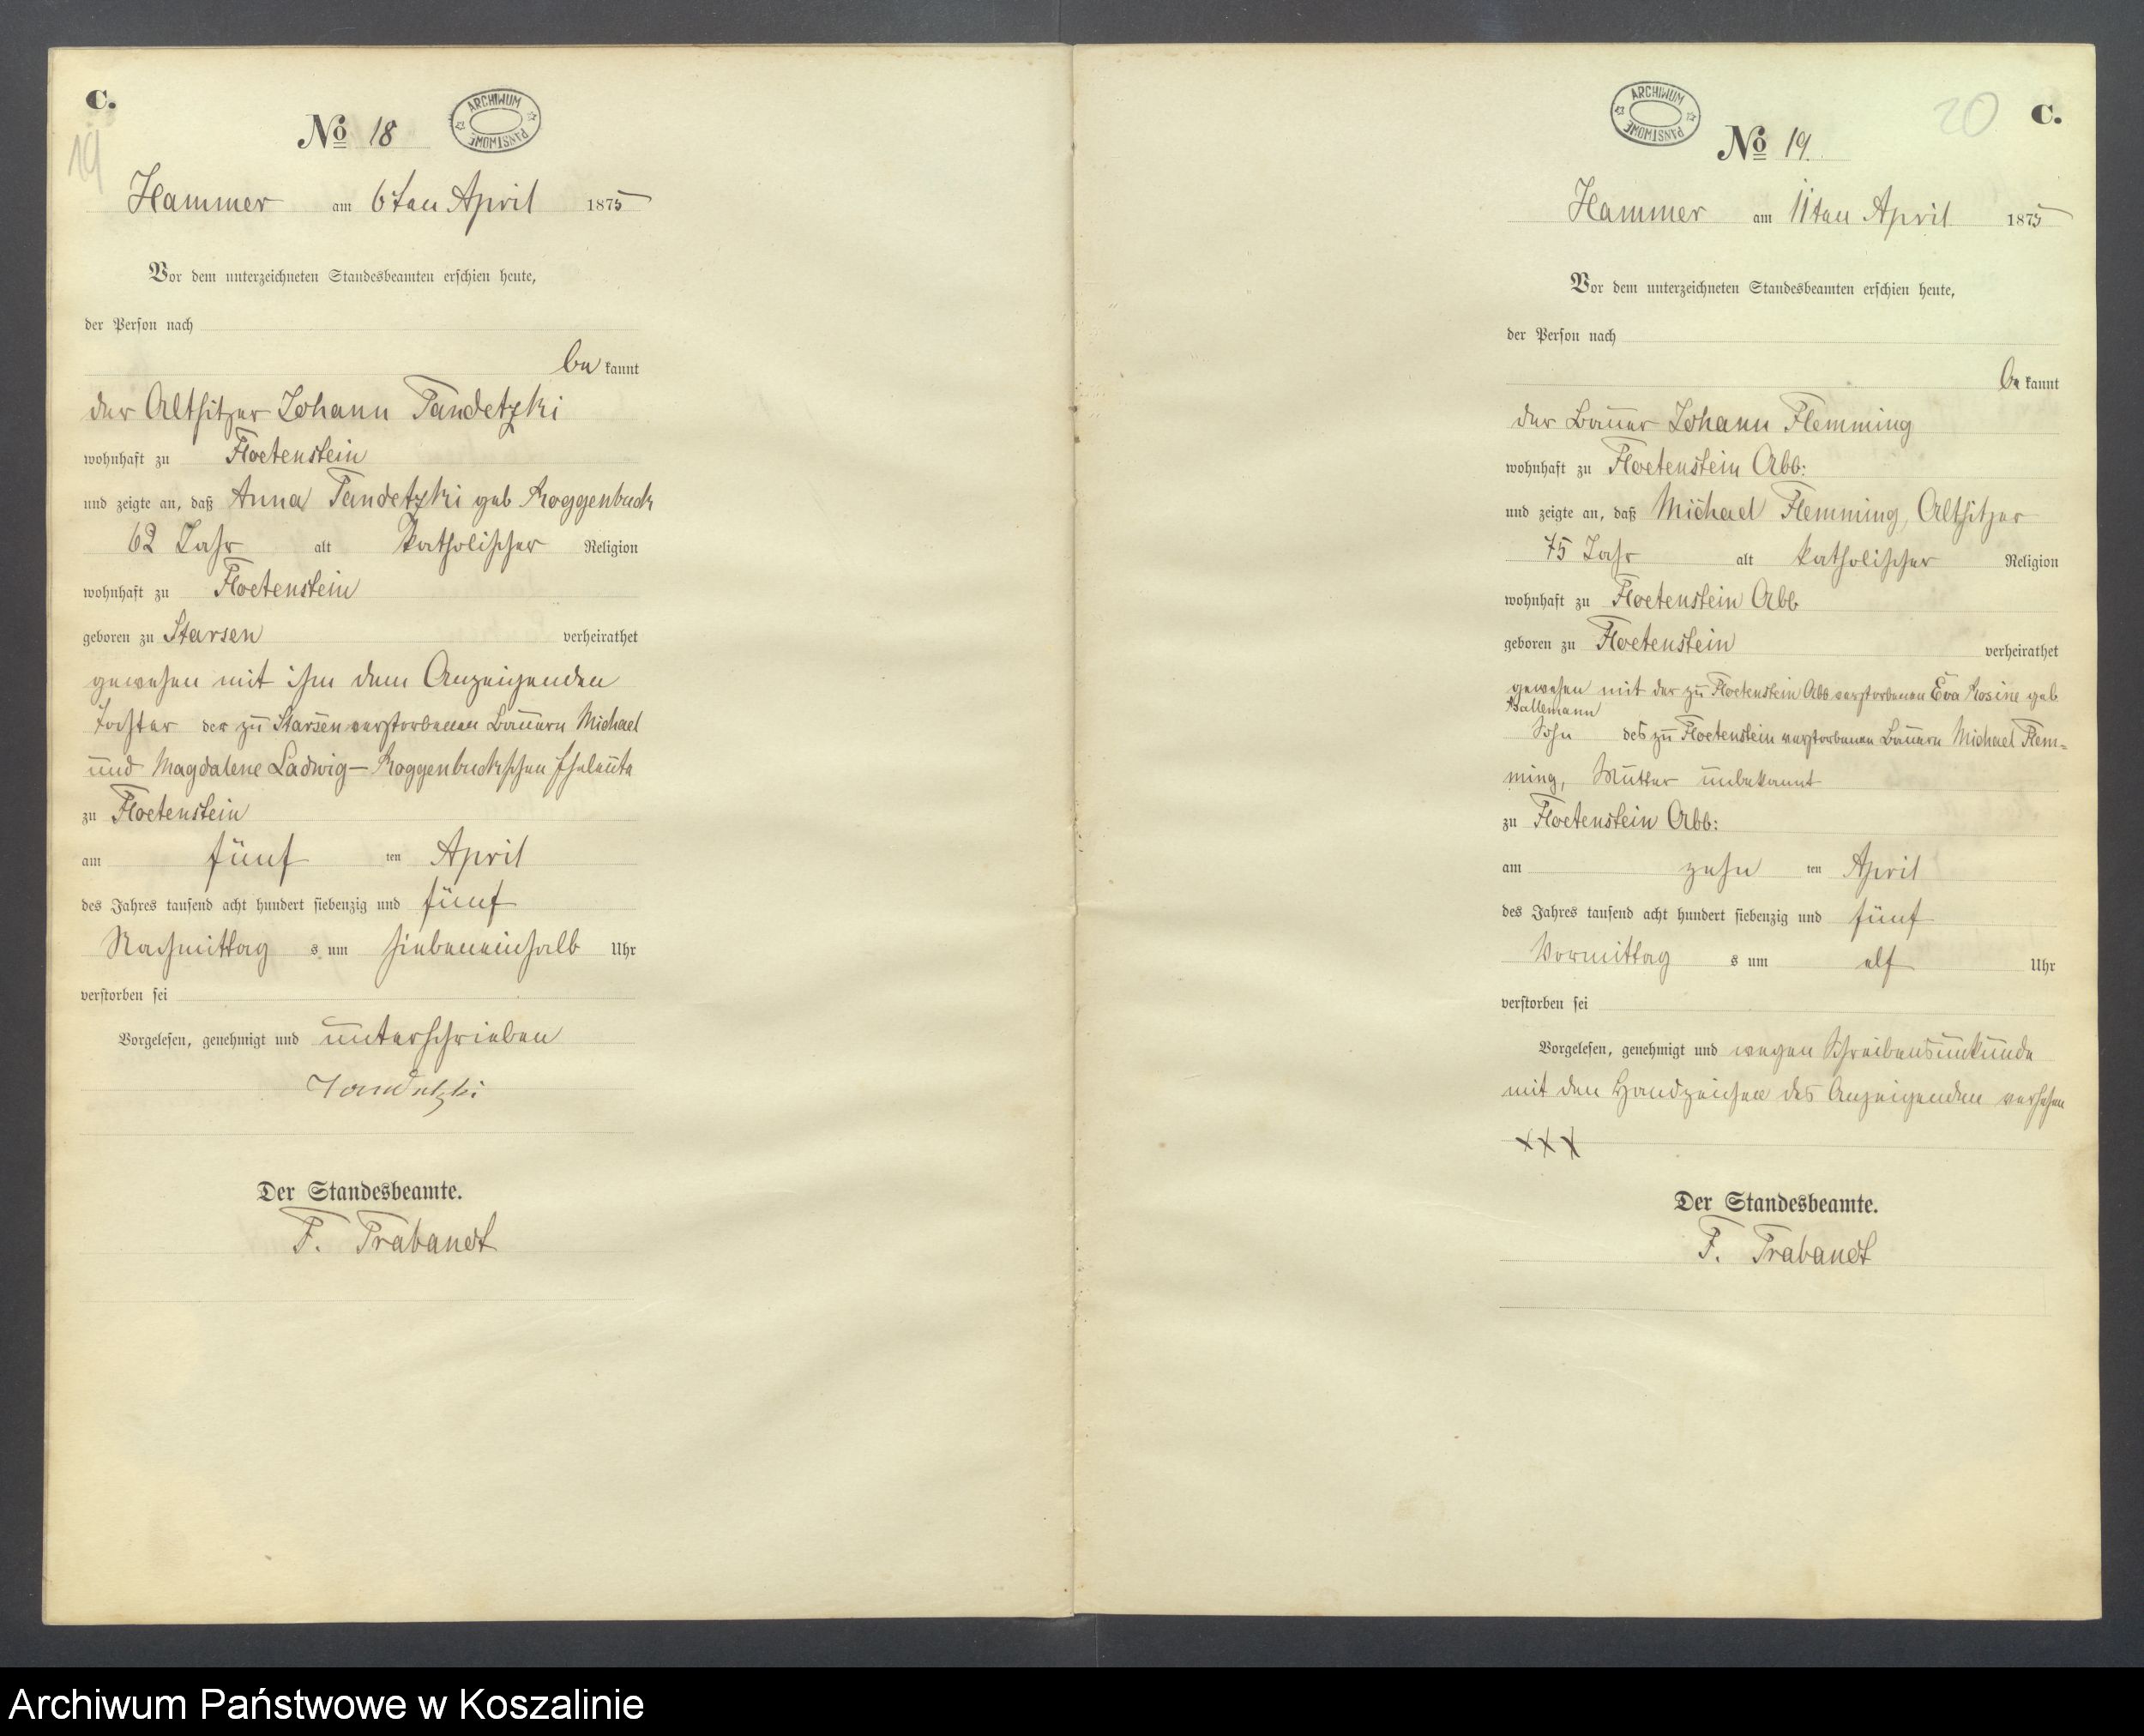 C.
19
No 18
ARCHIWUM PAŃSTWOWE
Hammer am 6ten April 1875
Vor dem unterzeichneten Standesbeamten erschien heute,
der Person nach
be kannt
der Altsitzer Johann Tandetzki
wohnhaft zu Floetenstein
und zeigte an, daß Anna Tandetzki geb Roggenbuck
62 Jahr alt katholischer Religion
wohnhaft zu Floetenstein
geboren zu Starsen verheirathet
gewesen mit ihm dem Anzeigenden
Tochter der zu Starsen verstorbenen Bauern Michael
und Magdalene Ladwig-Roggenbuckschen Eheleute
zu Floetenstein
am fünf ten April
des Jahres tausend acht hundert siebenzig und fünf
Nachmittag s um siebeneinhalb Uhr
verstorben sei
Vorgelesen, genehmigt und unterschrieben
Tandetzki
Der Standesbeamte.
F. Trabandt
ARCHIWUM PAŃSTWOWE
20
C.
No 19.
Hammer am 11ten April 1875
Vor dem unterzeichneten Standesbeamten erschien heute,
der Person nach
be kannt
der Bauer Johann Flemming
wohnhaft zu Floetenstein Abb:
und zeigte an, daß Michael Flemming, Altsitzer
75 Jahr alt katholischer Religion
wohnhaft zu Floetenstein Abb
geboren zu Floetenstein verheirathet
gewesen mit der zu Floetenstein Abb verstorbenen Eva Rosine geb
Sohn des zu Floetenstein verstorbenen Bauern Michael Flem=
ming, Mutter unbekannt
zu Floetenstein Abb:
am zehn ten April
des Jahres tausend acht hundert siebenzig und fünf
Vormittag s um elf Uhr
verstorben sei
Vorgelesen, genehmigt und wegen Schreibensunkunde
mit den Handzeichen des Anzeigenden versehen
XXX
Der Standesbeamte.
F. Trabandt
Archiwum Państwowe w Koszalinie